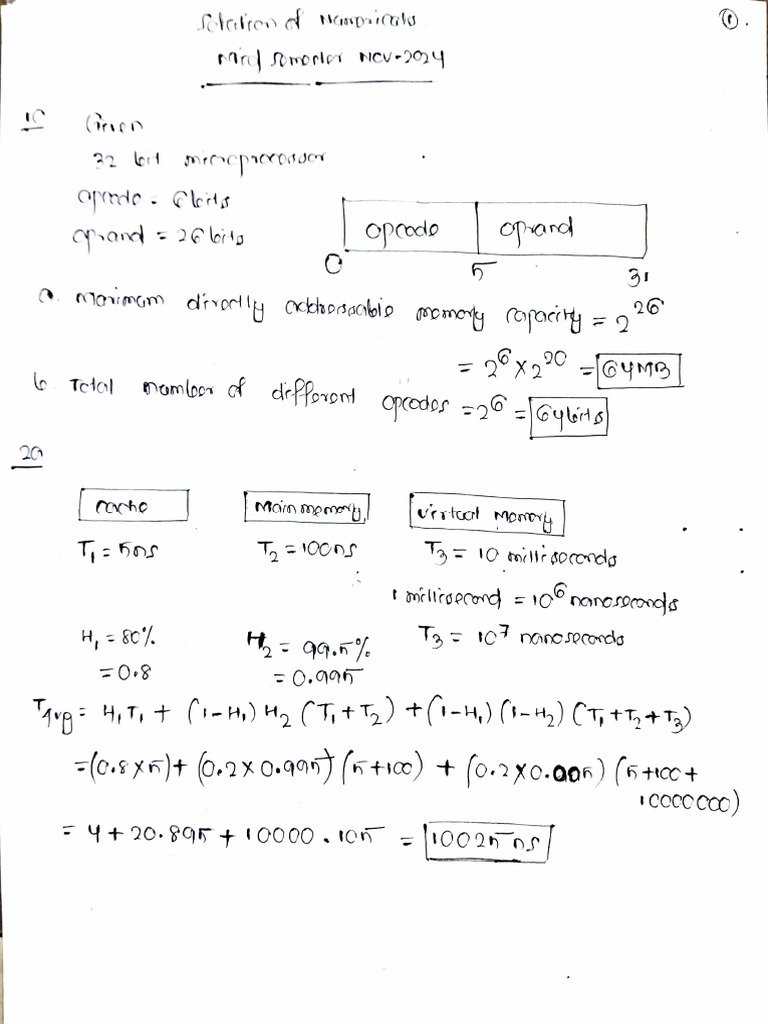 Solution of Numericals
①.
Mid Semester Nov-2024
1c Given
32 bit microprocessor
opcode = 6 bits
oprand = 26 bits
opcode oprand
0 5 31
a. Maximum directly addressable memory capacity = 2^26
= 2^6 × 2^20 = 64MB
b. Total number of different opcodes = 2^6 = 64 bits
2a
cache Main memory Virtual memory
T₁ = 5ns T₂ = 100ns T₃ = 10 milliseconds
1 millisecond = 10^6 nanoseconds
H₁ = 80% H₂ = 99.5% T₃ = 10^7 nanoseconds
= 0.8 = 0.995
Tavg = H₁T₁ + (1-H₁) H₂ (T₁+T₂) + (1-H₁) (1-H₂) (T₁+T₂+T₃)
= (0.8×5) + (0.2×0.995) (5+100) + (0.2×0.005) (5+100+
10000000)
= 4 + 20.895 + 10000.105 = 10025 ns